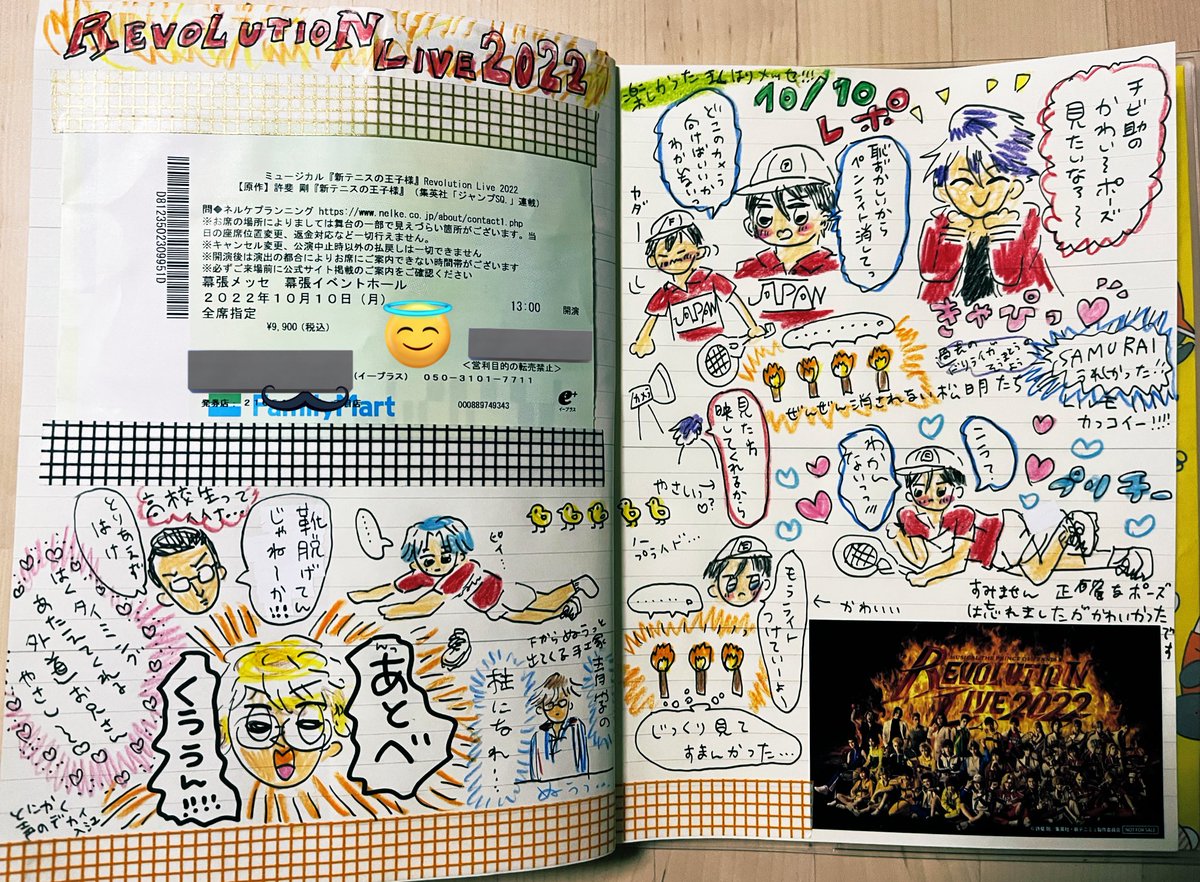 REVOLUTION LIVE 2022
ミュージカル『新テニスの王子様』Revolution Live 2022
【原作】許斐 剛『新テニスの王子様』(集英社「ジャンプSQ.」連載)
問◆ネルケプランニング https://www.nelke.co.jp/about/contact1.php
※お席の場所によりましては舞台の一部で見えづらい箇所がございます。当
日の座席位置変更、返金対応など一切行えません。
※キャンセル変更、公演中止時以外の払戻しは一切できません
※開演後は演出の都合によりお席にご案内できない時間帯がございます
※必ずご来場前に公式サイト掲載のご案内をご確認ください
幕張メッセ 幕張イベントホール
2022年10月10日(月) 13:00 開演
全席指定
¥9,900(税込)
<営利目的の転売禁止>
(イープラス) 050-3101-7711
発券店
FamilyMart
000889749343
e+
イープラス
D8123502309951D
高校生って
とりあえず
はけ
靴脱げてん
じゃねーか!!!
……
ピィ
はくタイミング
あたえてくれる
外道お兄さん
やさし〜
あとべ
くううん!!!!
とにかく
声のデカイ
入江
下からぬぅうっと
出てくる手塚
青春の
柱になれ…
ぬっ…
楽しかった まくはりメッセ!!!
10/10
レポ
チビ助の
かわい〜ポーズ
見たいな?〜
どこのカメラ
向けばいいか
わかんない
恥ずかしいから
ペンライト消してっ
ヤダー
JAPAN
JAPAN
きゃぴっ
…………
ぜんぜん消されない松明たち
SAMURAI
うれしかった!!
とっても
カッコイー!!!!
カメラ
見た方
映してくれるから
やさしい♡?
わかん
ないっ!!
こう?
プッチー
プライド…
もうライト
つけていーよ
← かわいい
………
じっくり見て
すまんかった…
すみません 正確なポーズ
は忘れましたがかわいかった
です
REVOLUTION
LIVE 2022
NOT FOR SALE